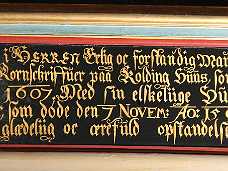 i HERREN Erlig oc forstandig Man
Kornschriffüer paa Kolding Hüüs som
1607, Med sin elskelige Hü
som døde den 7 NOVEM: AO: 15
glædelig oc ærefüld opstandels